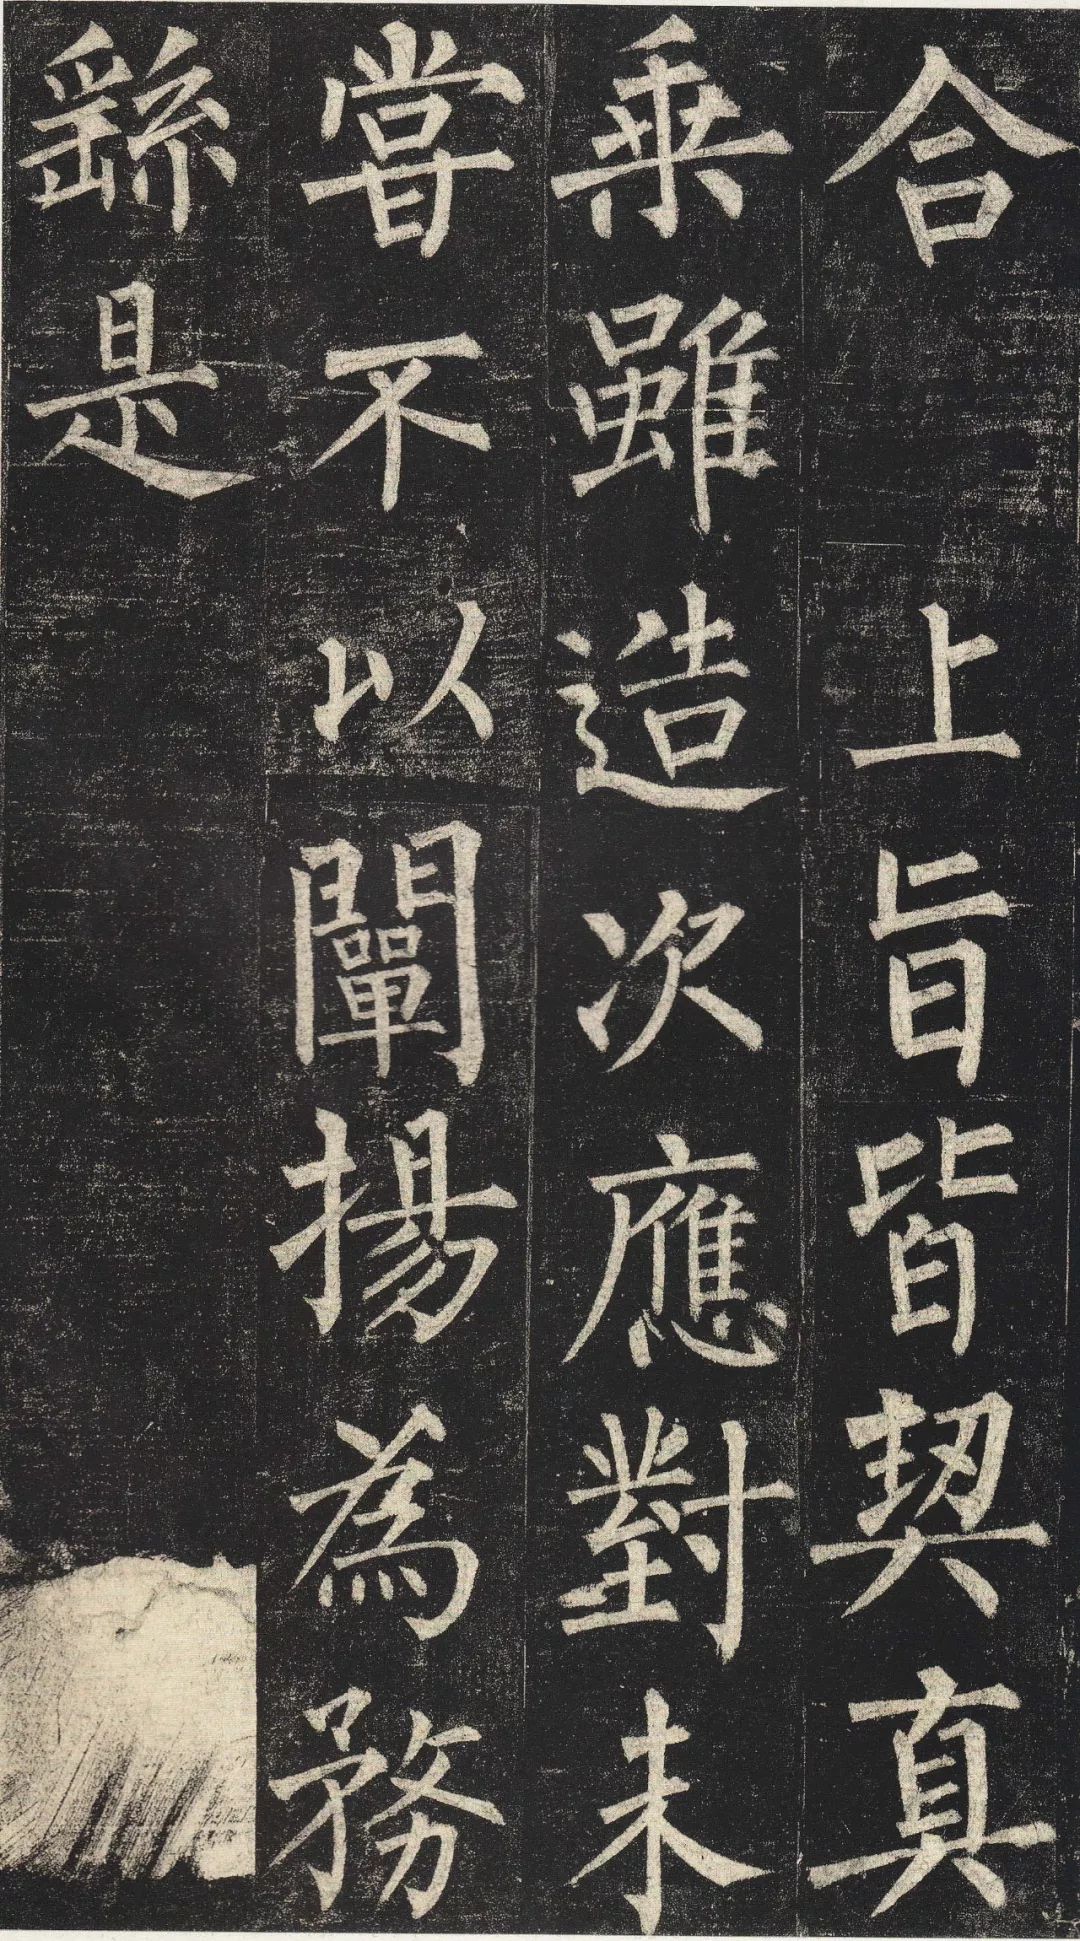 合　上旨皆契真
乘雖造次應對未
甞不以闡揚為務
繇是